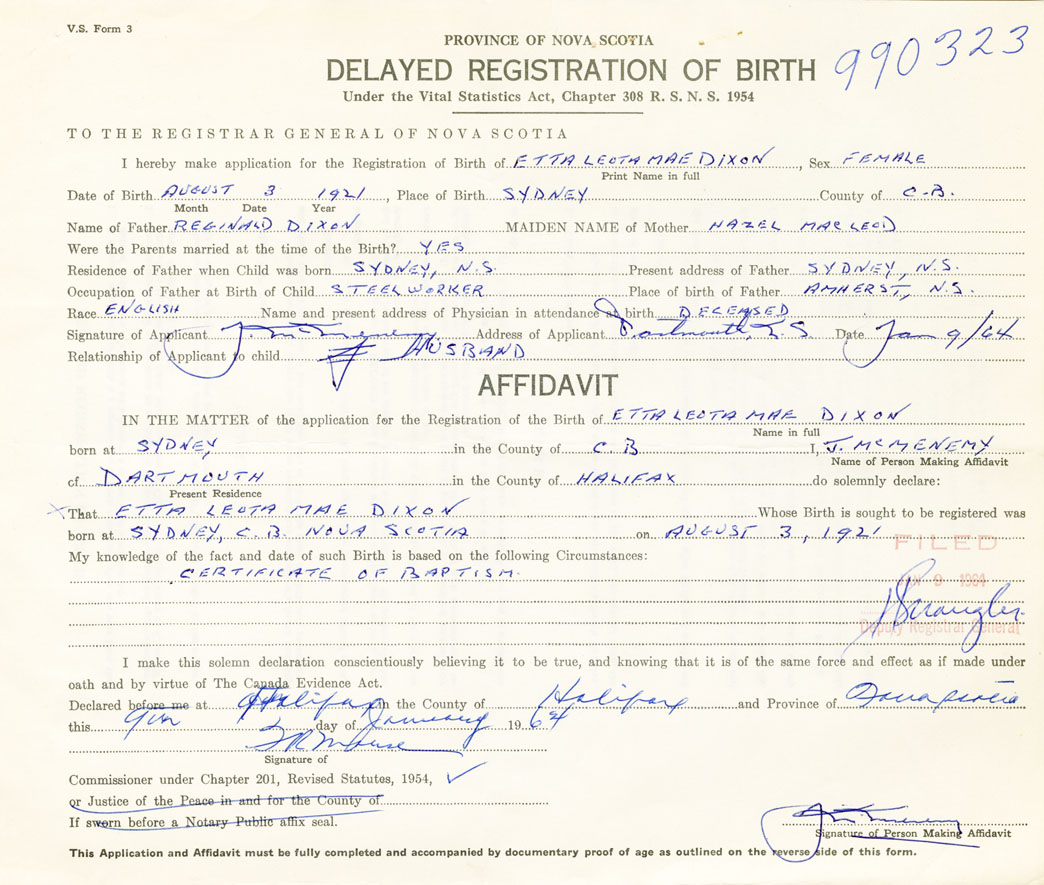 V.S. Form 3
PROVINCE OF NOVA SCOTIA
990323
DELAYED REGISTRATION OF BIRTH
Under the Vital Statistics Act, Chapter 308 R. S. N. S. 1954
TO THE REGISTRAR GENERAL OF NOVA SCOTIA
I hereby make application for the Registration of Birth of ETTA LEOTA MAE DIXON, Sex FEMALE
Print Name in full
Date of Birth AUGUST 3 1921, Place of Birth SYDNEY County of C.B.
Month Date Year
Name of Father REGINALD DIXON MAIDEN NAME of Mother HAZEL MACLEOD
Were the Parents married at the time of the Birth? YES
Residence of Father when Child was born SYDNEY, N.S. Present address of Father SYDNEY, N.S.
Occupation of Father at Birth of Child STEELWORKER Place of birth of Father AMHERST, N.S.
Race ENGLISH Name and present address of Physician in attendance at birth DECEASED
Signature of Applicant J. McMenemy Address of Applicant Dartmouth, N.S. Date Jan 9/64
Relationship of Applicant to child HUSBAND
AFFIDAVIT
IN THE MATTER of the application for the Registration of the Birth of ETTA LEOTA MAE DIXON
Name in full
born at SYDNEY in the County of C.B I, J. MCMENEMY
Name of Person Making Affidavit
of DARTMOUTH in the County of HALIFAX do solemnly declare:
Present Residence
X That ETTA LEOTA MAE DIXON Whose Birth is sought to be registered was
born at SYDNEY, C.B. NOVA SCOTIA on AUGUST 3, 1921
FILED
My knowledge of the fact and date of such Birth is based on the following Circumstances:
CERTIFICATE OF BAPTISM.
9 1964
Deputy Registrar General
I make this solemn declaration conscientiously believing it to be true, and knowing that it is of the same force and effect as if made under
oath and by virtue of The Canada Evidence Act.
Declared before me at Halifax in the County of Halifax and Province of Nova Scotia
this 9th day of January 1964
Signature of
Commissioner under Chapter 201, Revised Statutes, 1954, ✓
or Justice of the Peace in and for the County of
If sworn before a Notary Public affix seal.
J. McMenemy
Signature of Person Making Affidavit
This Application and Affidavit must be fully completed and accompanied by documentary proof of age as outlined on the reverse side of this form.